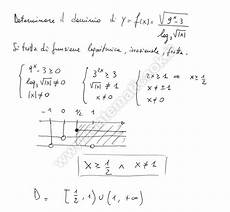 Determinare il dominio di y = f(x) = √(9^x - 3) / log₃√|x|
Si tratta di funzione logaritmica, irrazionale, fratta.
{ 9^x - 3 ≥ 0 { 3^2x ≥ 3 { 2x ≥ 1 ⇒ x ≥ 1/2
log₃√|x| ≠ 0 √|x| ≠ 1 x ≠ ±1
|x| ≠ 0 x ≠ 0 x ≠ 0
-1 0 1/2 1
x ≥ 1/2 ∧ x ≠ 1
D = [1/2, 1) ∪ (1, +∞)